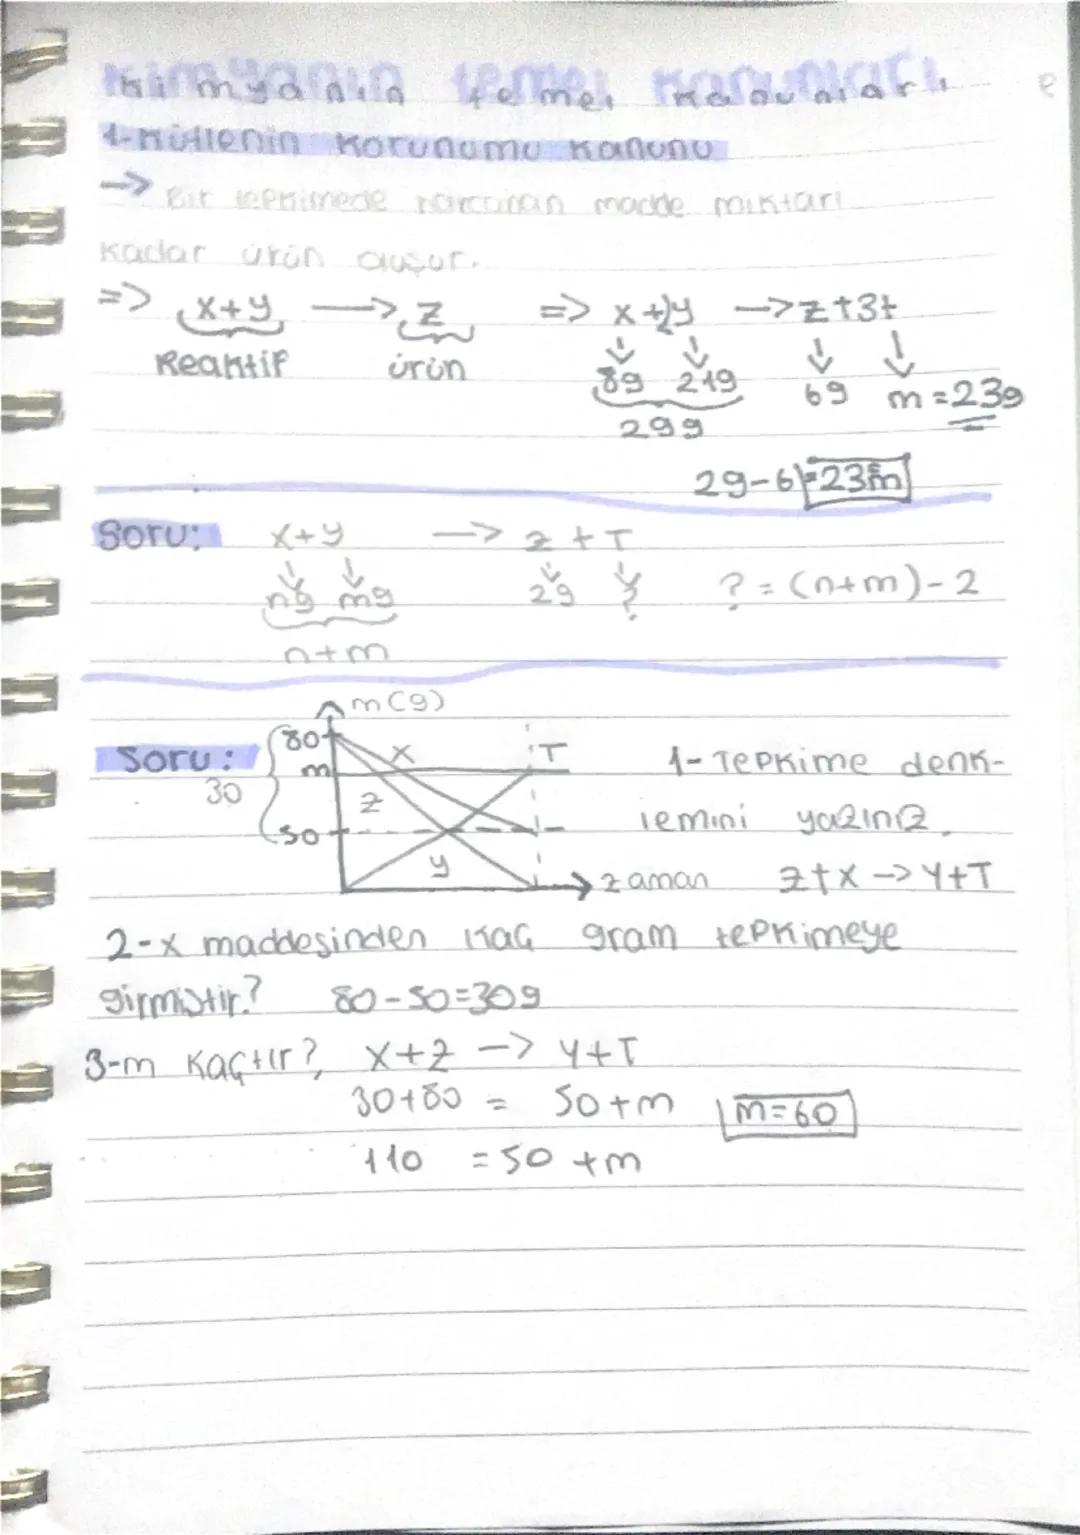 Kimyanın temel kanunları
1-Kütlenin Korunumu Kanunu
-> Bir tepkimede harcanan madde miktarı
kadar ürün oluşur.
=> x+y -> z => x+2y -> z+3t
Reaktif ürün 8g 21g 6g m=23g
29g
29-6=23m
Soru: x+y -> z+T
ng mg 2g ? ?=(n+m)-2
n+m
m(g)
Soru: 80 x T 1-Tepkime denk-
m
30 z
50 lemini yazınız.
y zaman z+x->y+T
2-x maddesinden kaç gram tepkimeye
girmiştir? 80-50=30g
3-m kaçtır? x+z -> y+T
30+80 = 50+m m=60
110 =50+m